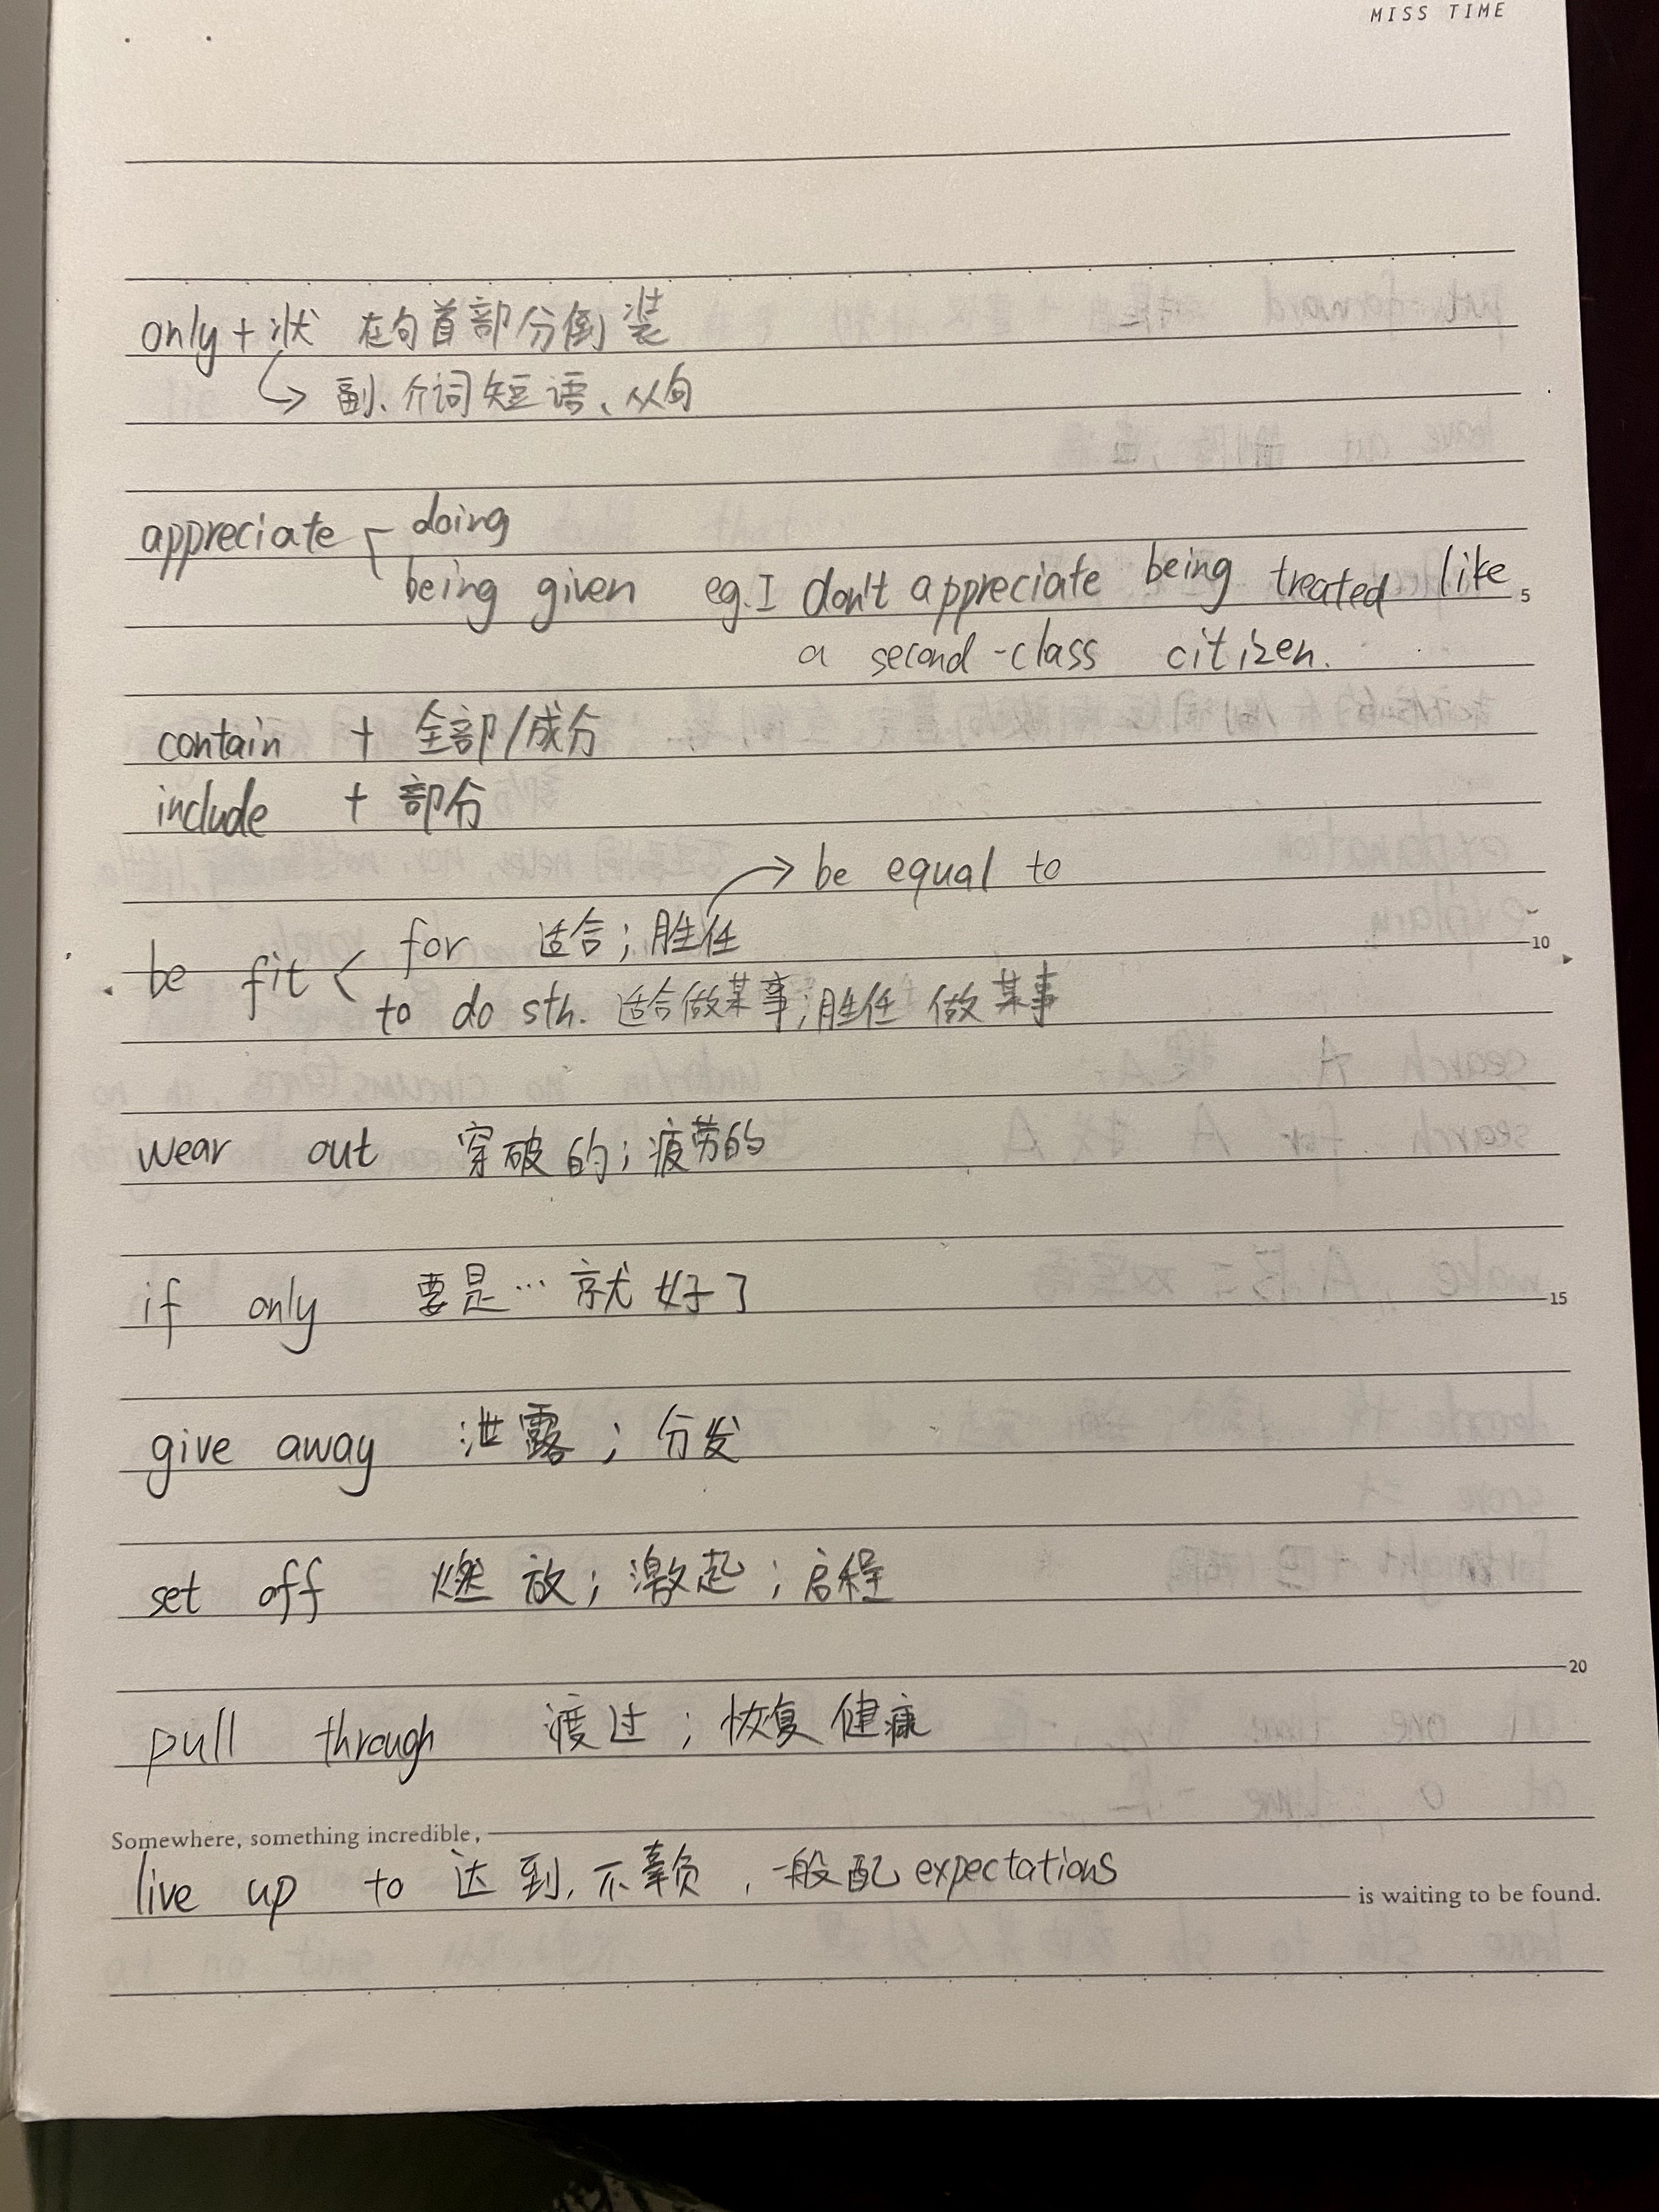 MISS TIME
only + 状 在句首部分倒装
↳ 副、介词短语、从句
appreciate { doing
being given eg. I don't appreciate being treated like
a second-class citizen.
5
contain + 全部/成分
include + 部分
→ be equal to
be fit < for 适合；胜任
to do sth. 适合做某事，胜任做某事
10
wear out 穿破的；疲劳的
if only 要是…就好了
15
give away 泄露；分发
set off 燃放；激起；启程
20
pull through 渡过；恢复健康
Somewhere, something incredible,
live up to 达到，不辜负，一般配 expectations
is waiting to be found.